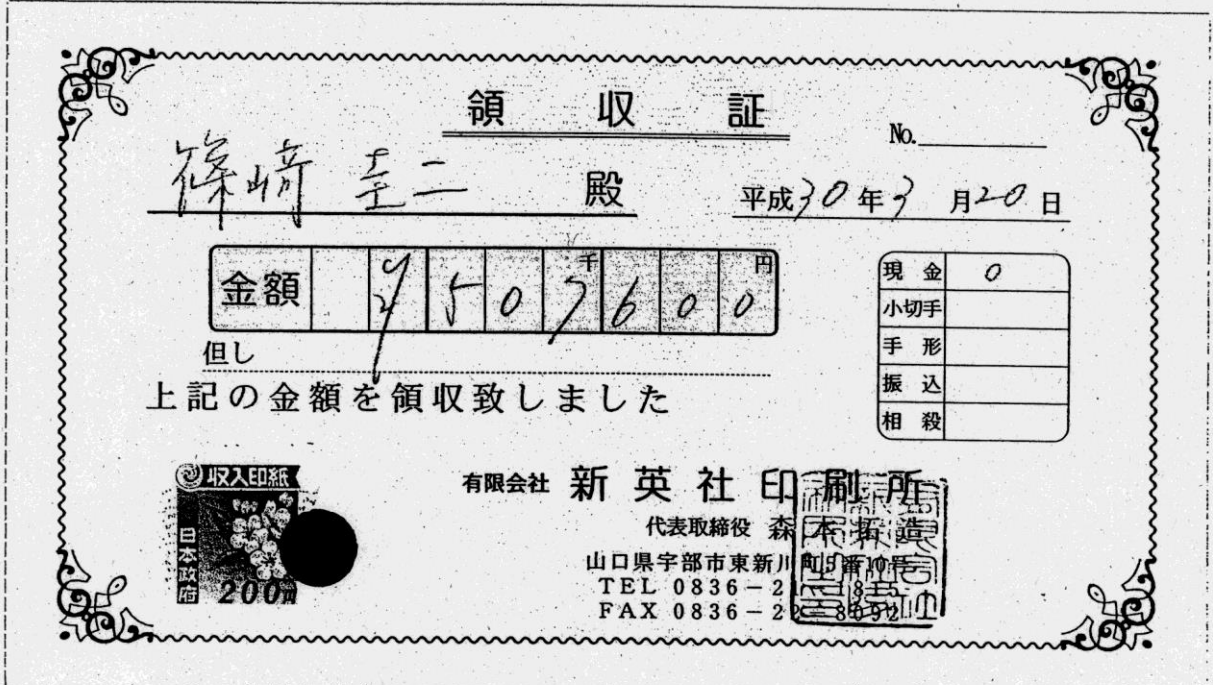 領収証
No.
篠﨑 圭二 殿
平成30年3月20日
金額 ¥507600
千
円
但し
上記の金額を領収致しました
現金 0
小切手
手形
振込
相殺
収入印紙
日本政府
200円
有限会社 新英社印刷所
代表取締役 森本拓造
山口県宇部市東新川町5番10号
TEL 0836-2
FAX 0836-2